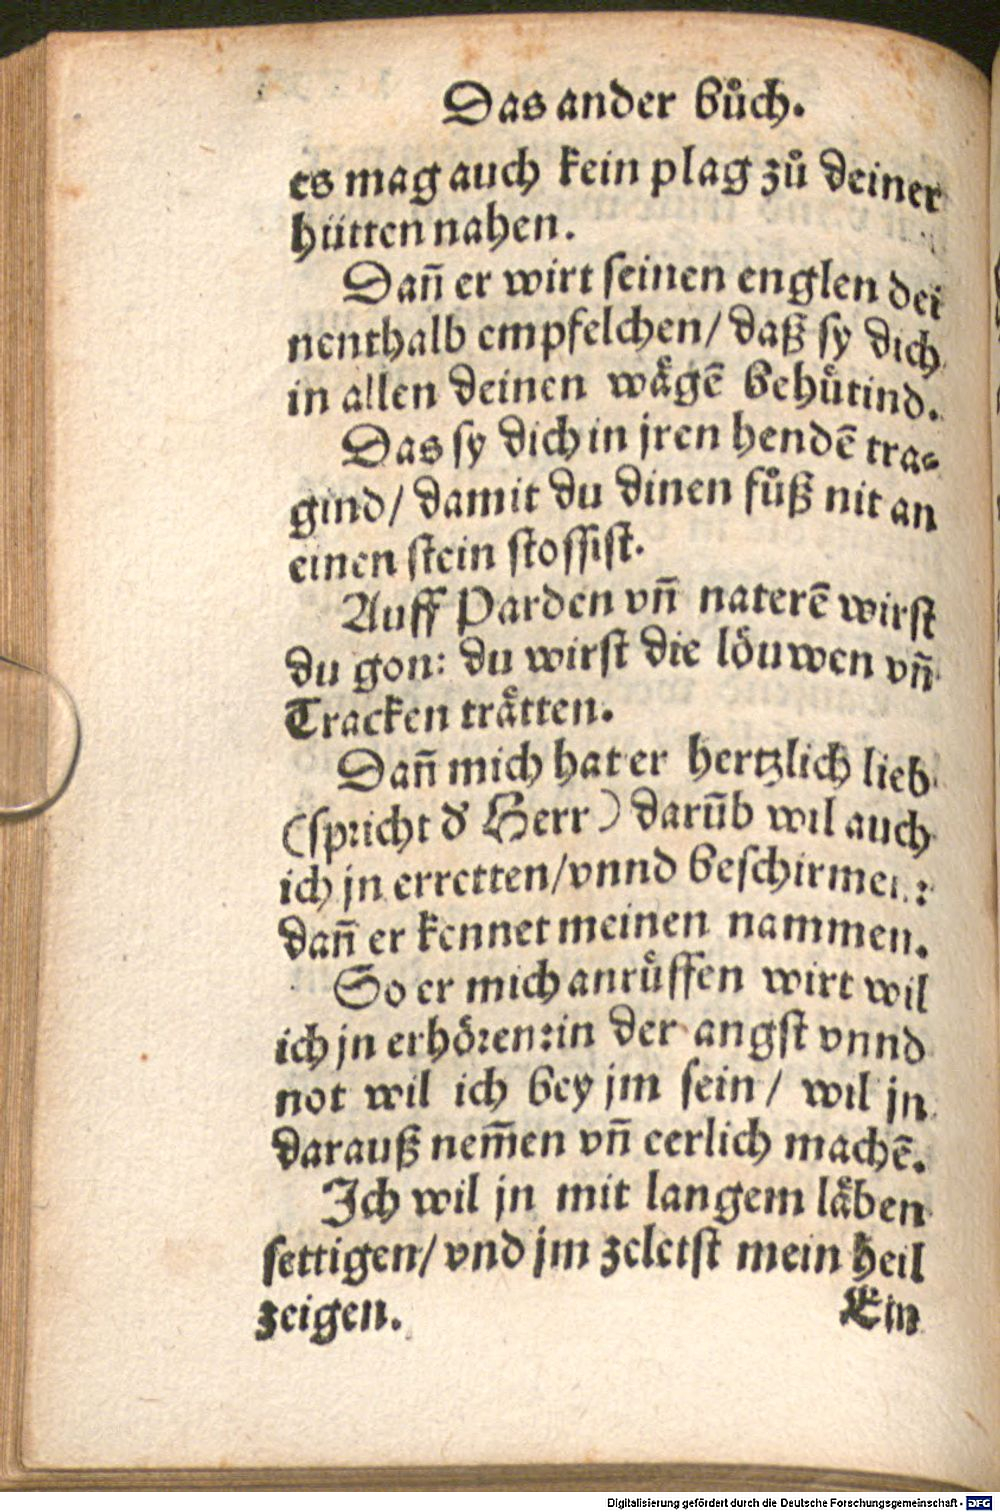 Das ander bůch.
es mag auch kein plag zů deiner
hütten nahen.
Dañ er wirt seinen englen dei
nenthalb empfelchen/ daß sy dich
in allen deinen wågē behůtind.
Das sy dich in jren hendē tra⸗
gind/ damit du dinen fůß nit an
einen stein stossist.
Auff Parden vñ naterē wirst
du gon: du wirst die löuwen vñ
Tracken tråtten.
Dañ mich hat er hertzlich lieb
(spricht d' Herr) darūb wil auch
ich jn erretten/vnnd beschirmen:
dañ er kennet meinen nammen.
So er mich anrůffen wirt wil
ich jn erhören:in der angst vnnd
not wil ich bey jm sein/ wil jn
darauß nem̄en vñ eerlich machē.
Ich wil jn mit langem låben
settigen/ vnd jm zeletst mein heil
zeigen. Ein
Digitalisierung gefördert durch die Deutsche Forschungsgemeinschaft - DFG